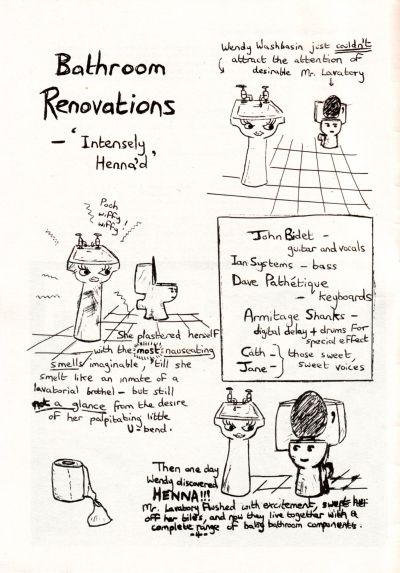 Bathroom
Renovations
- 'Intensely
Henna'd'
Wendy Washbasin just couldn't
attract the attention of
desirable Mr. Lavatory
Pooh
wiffy!
wiffy!
She plastered herself
with the most nauseating
smells imaginable, 'till she
smelt like an inmate of a
lavatorial brothel - but still
not a glance from the desire
of her palpitating little
U-bend.
John Bidet -
guitar and vocals
Ian Systems - bass
Dave Pathétique
- keyboards
Armitage Shanks -
digital delay + drums for
special effect
Cath - those sweet,
Jane - sweet voices
Then one day
Wendy discovered
HENNA!!!
Mr. Lavatory flushed with excitement, swept her
off her tiles, and now they live together with a
complete range of baby bathroom components.